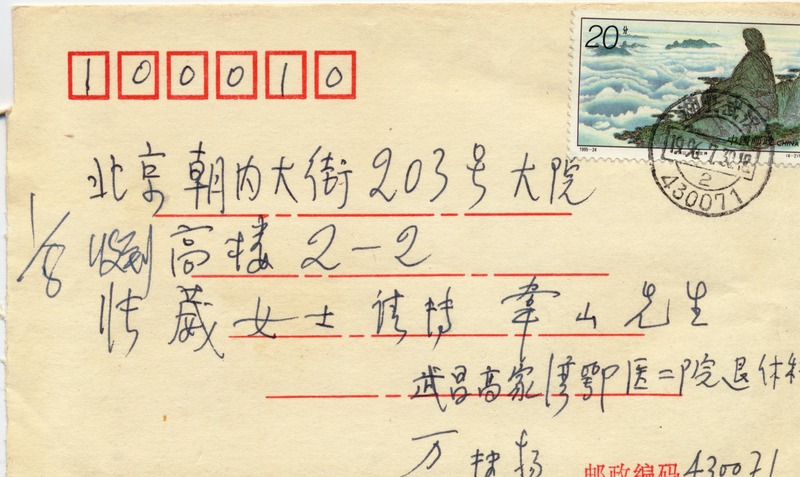 100010
20分
1995-24
中国邮政 CHINA
1996.7.30.18
2
430071
北京朝内大街203号大院
1/8 收到 高楼2-2
张葳女士请转韦山先生
武昌高家湾鄂医二院退休科
万
邮政编码 430071